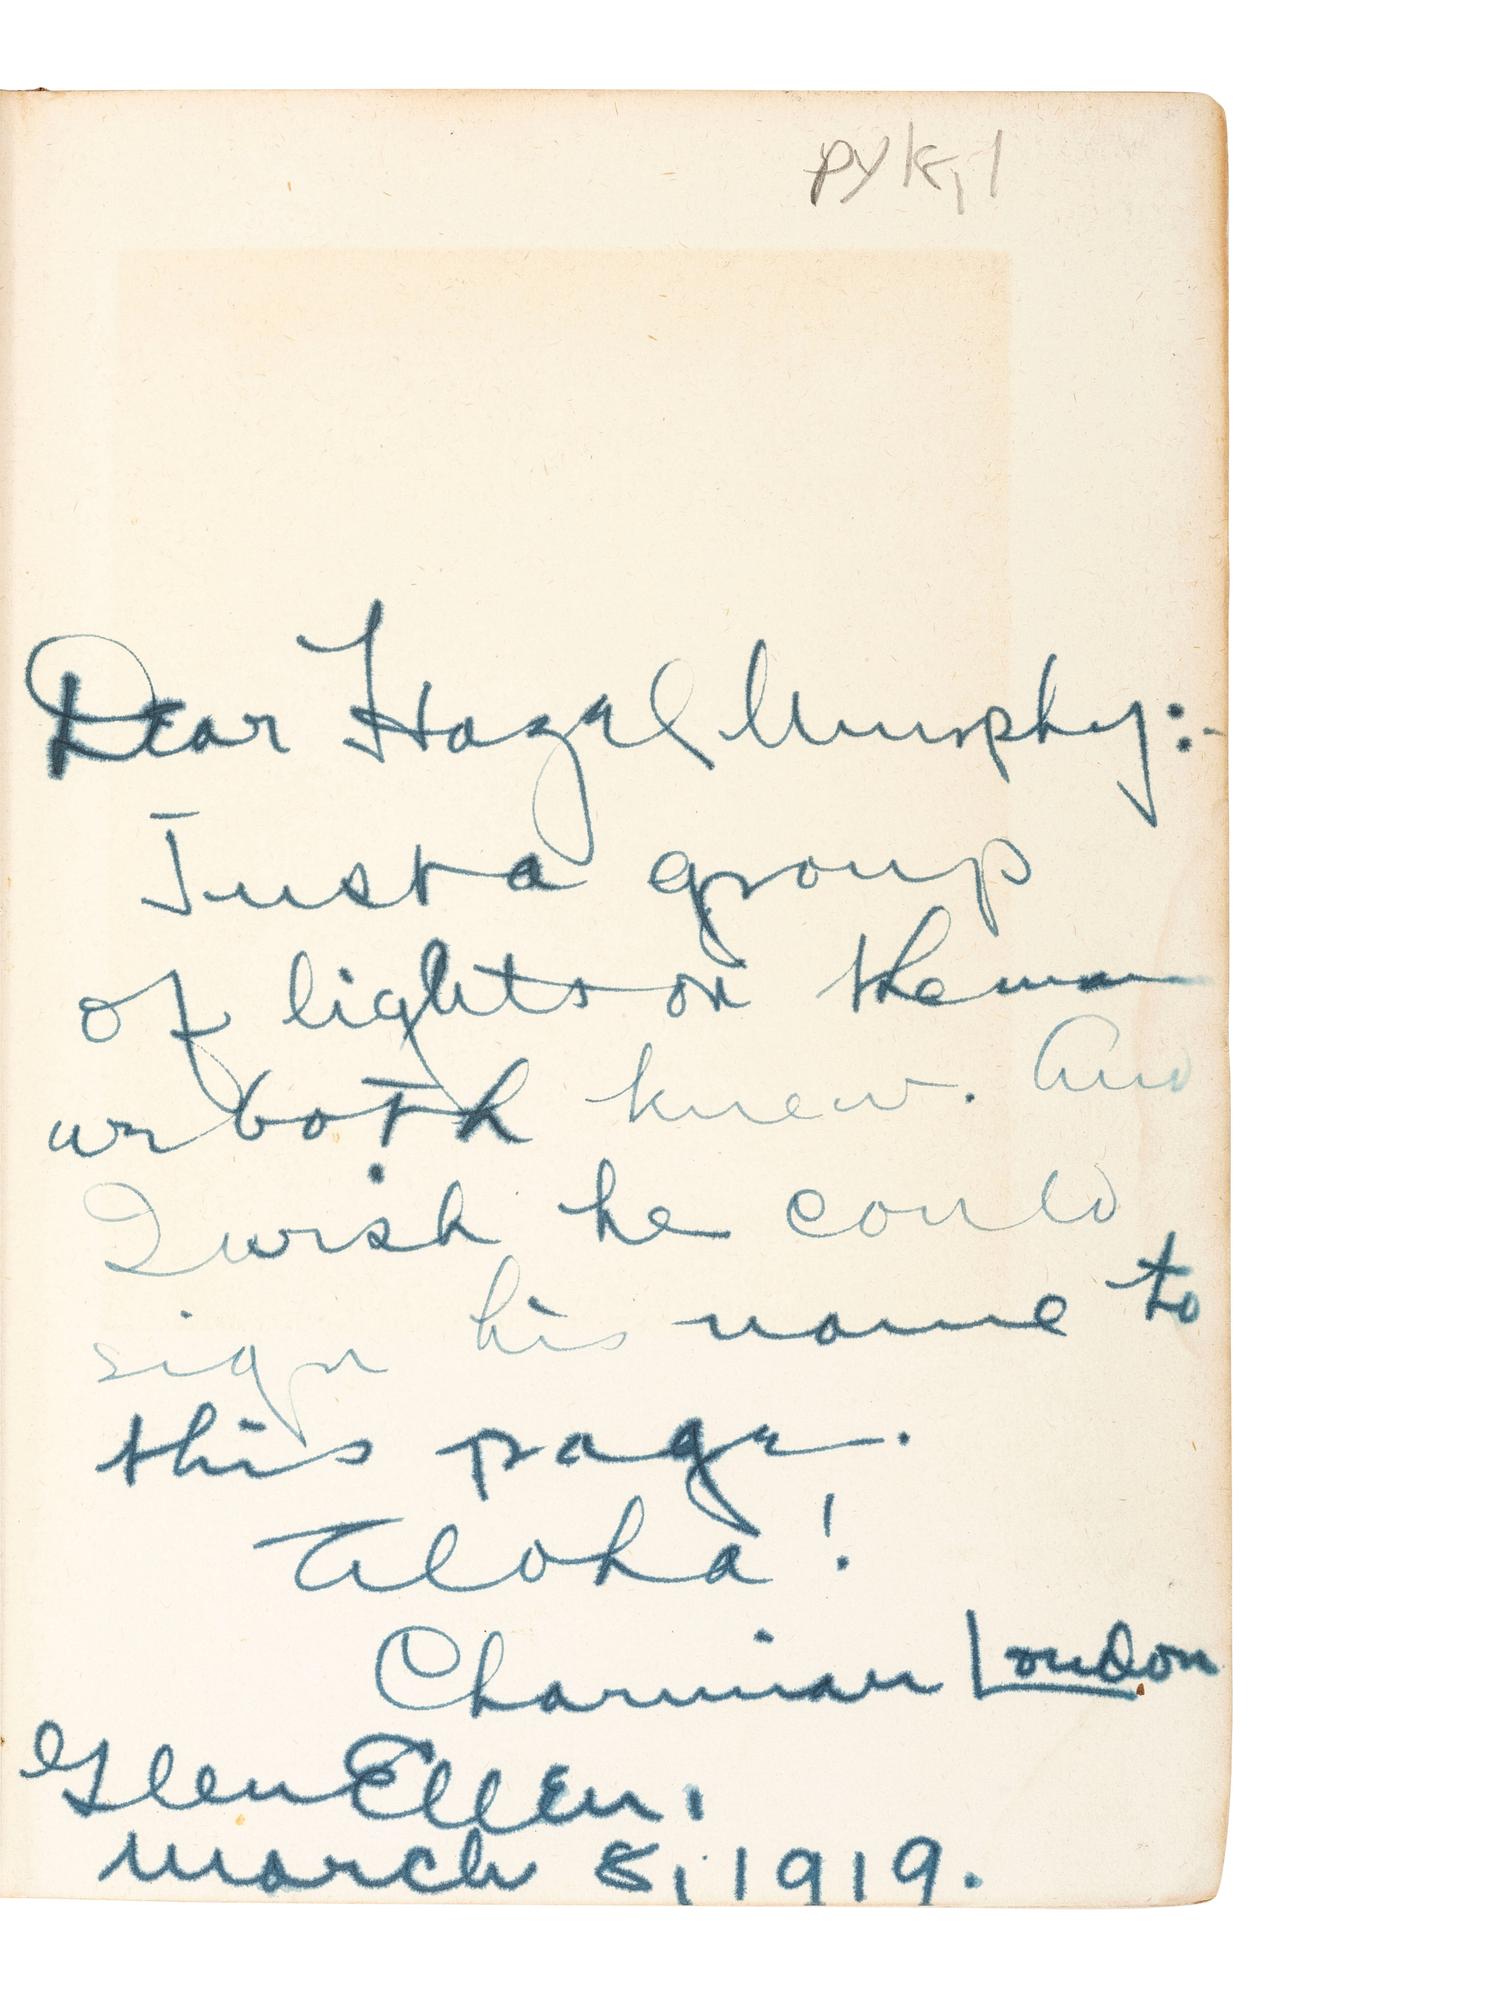 Dear Hazel Murphy:-
Just a group
of lights on the man
we both knew. And
I wish he could
sign his name to
this page.
Aloha!
Charmian London
Glen Ellen,
March 8, 1919.